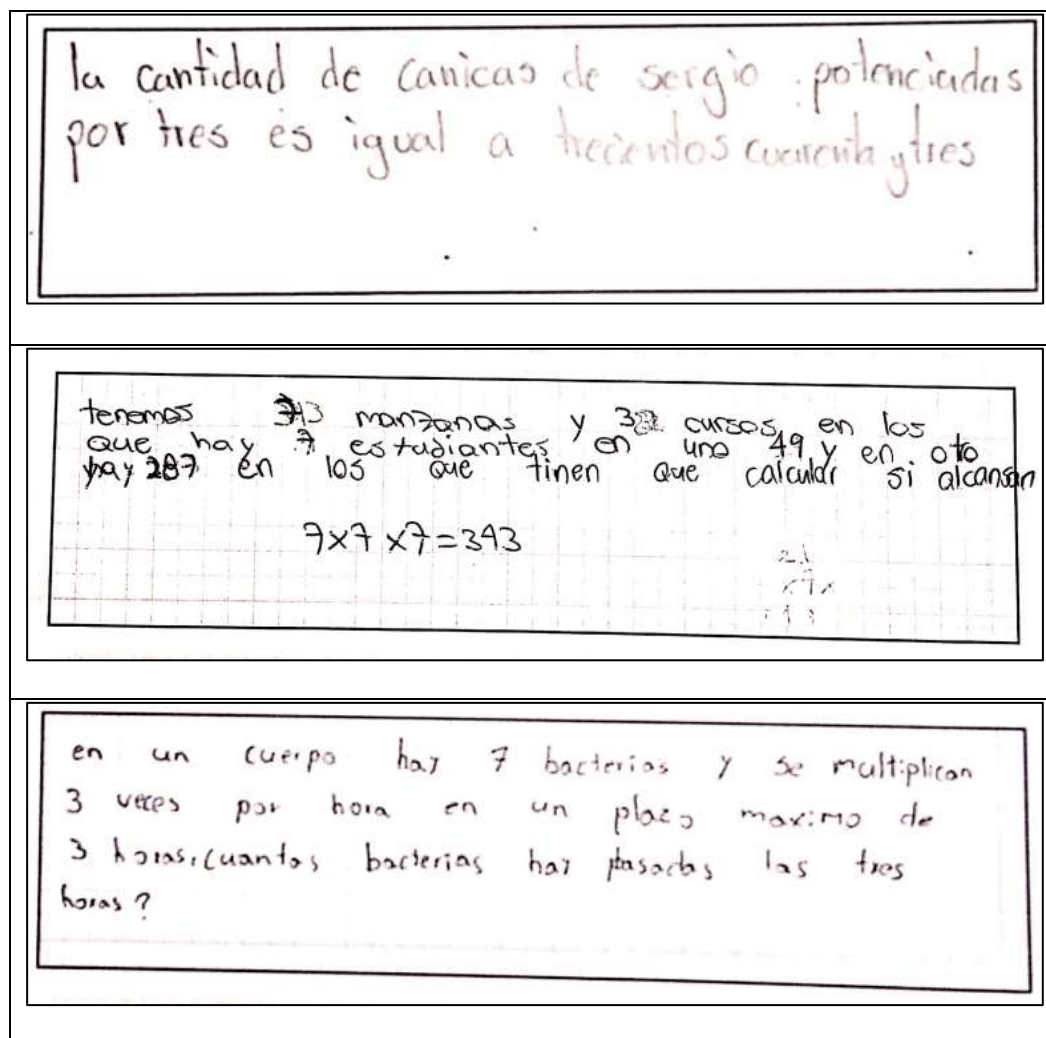 la cantidad de canicas de sergio potenciadas
por tres es igual a trecientos cuarenta y tres
tenemos manzanas y 3 cursos, en los
que hay 7 estudiantes en uno 49 y en oto
hay 287 en los que tinen que calcular si alcansan
7x7x7=343
en un cuerpo hay 7 bacterias y se multiplican
3 veces por hora en un plazo maximo de
3 horas, cuantas bacterias hay pasadas las tres
horas?